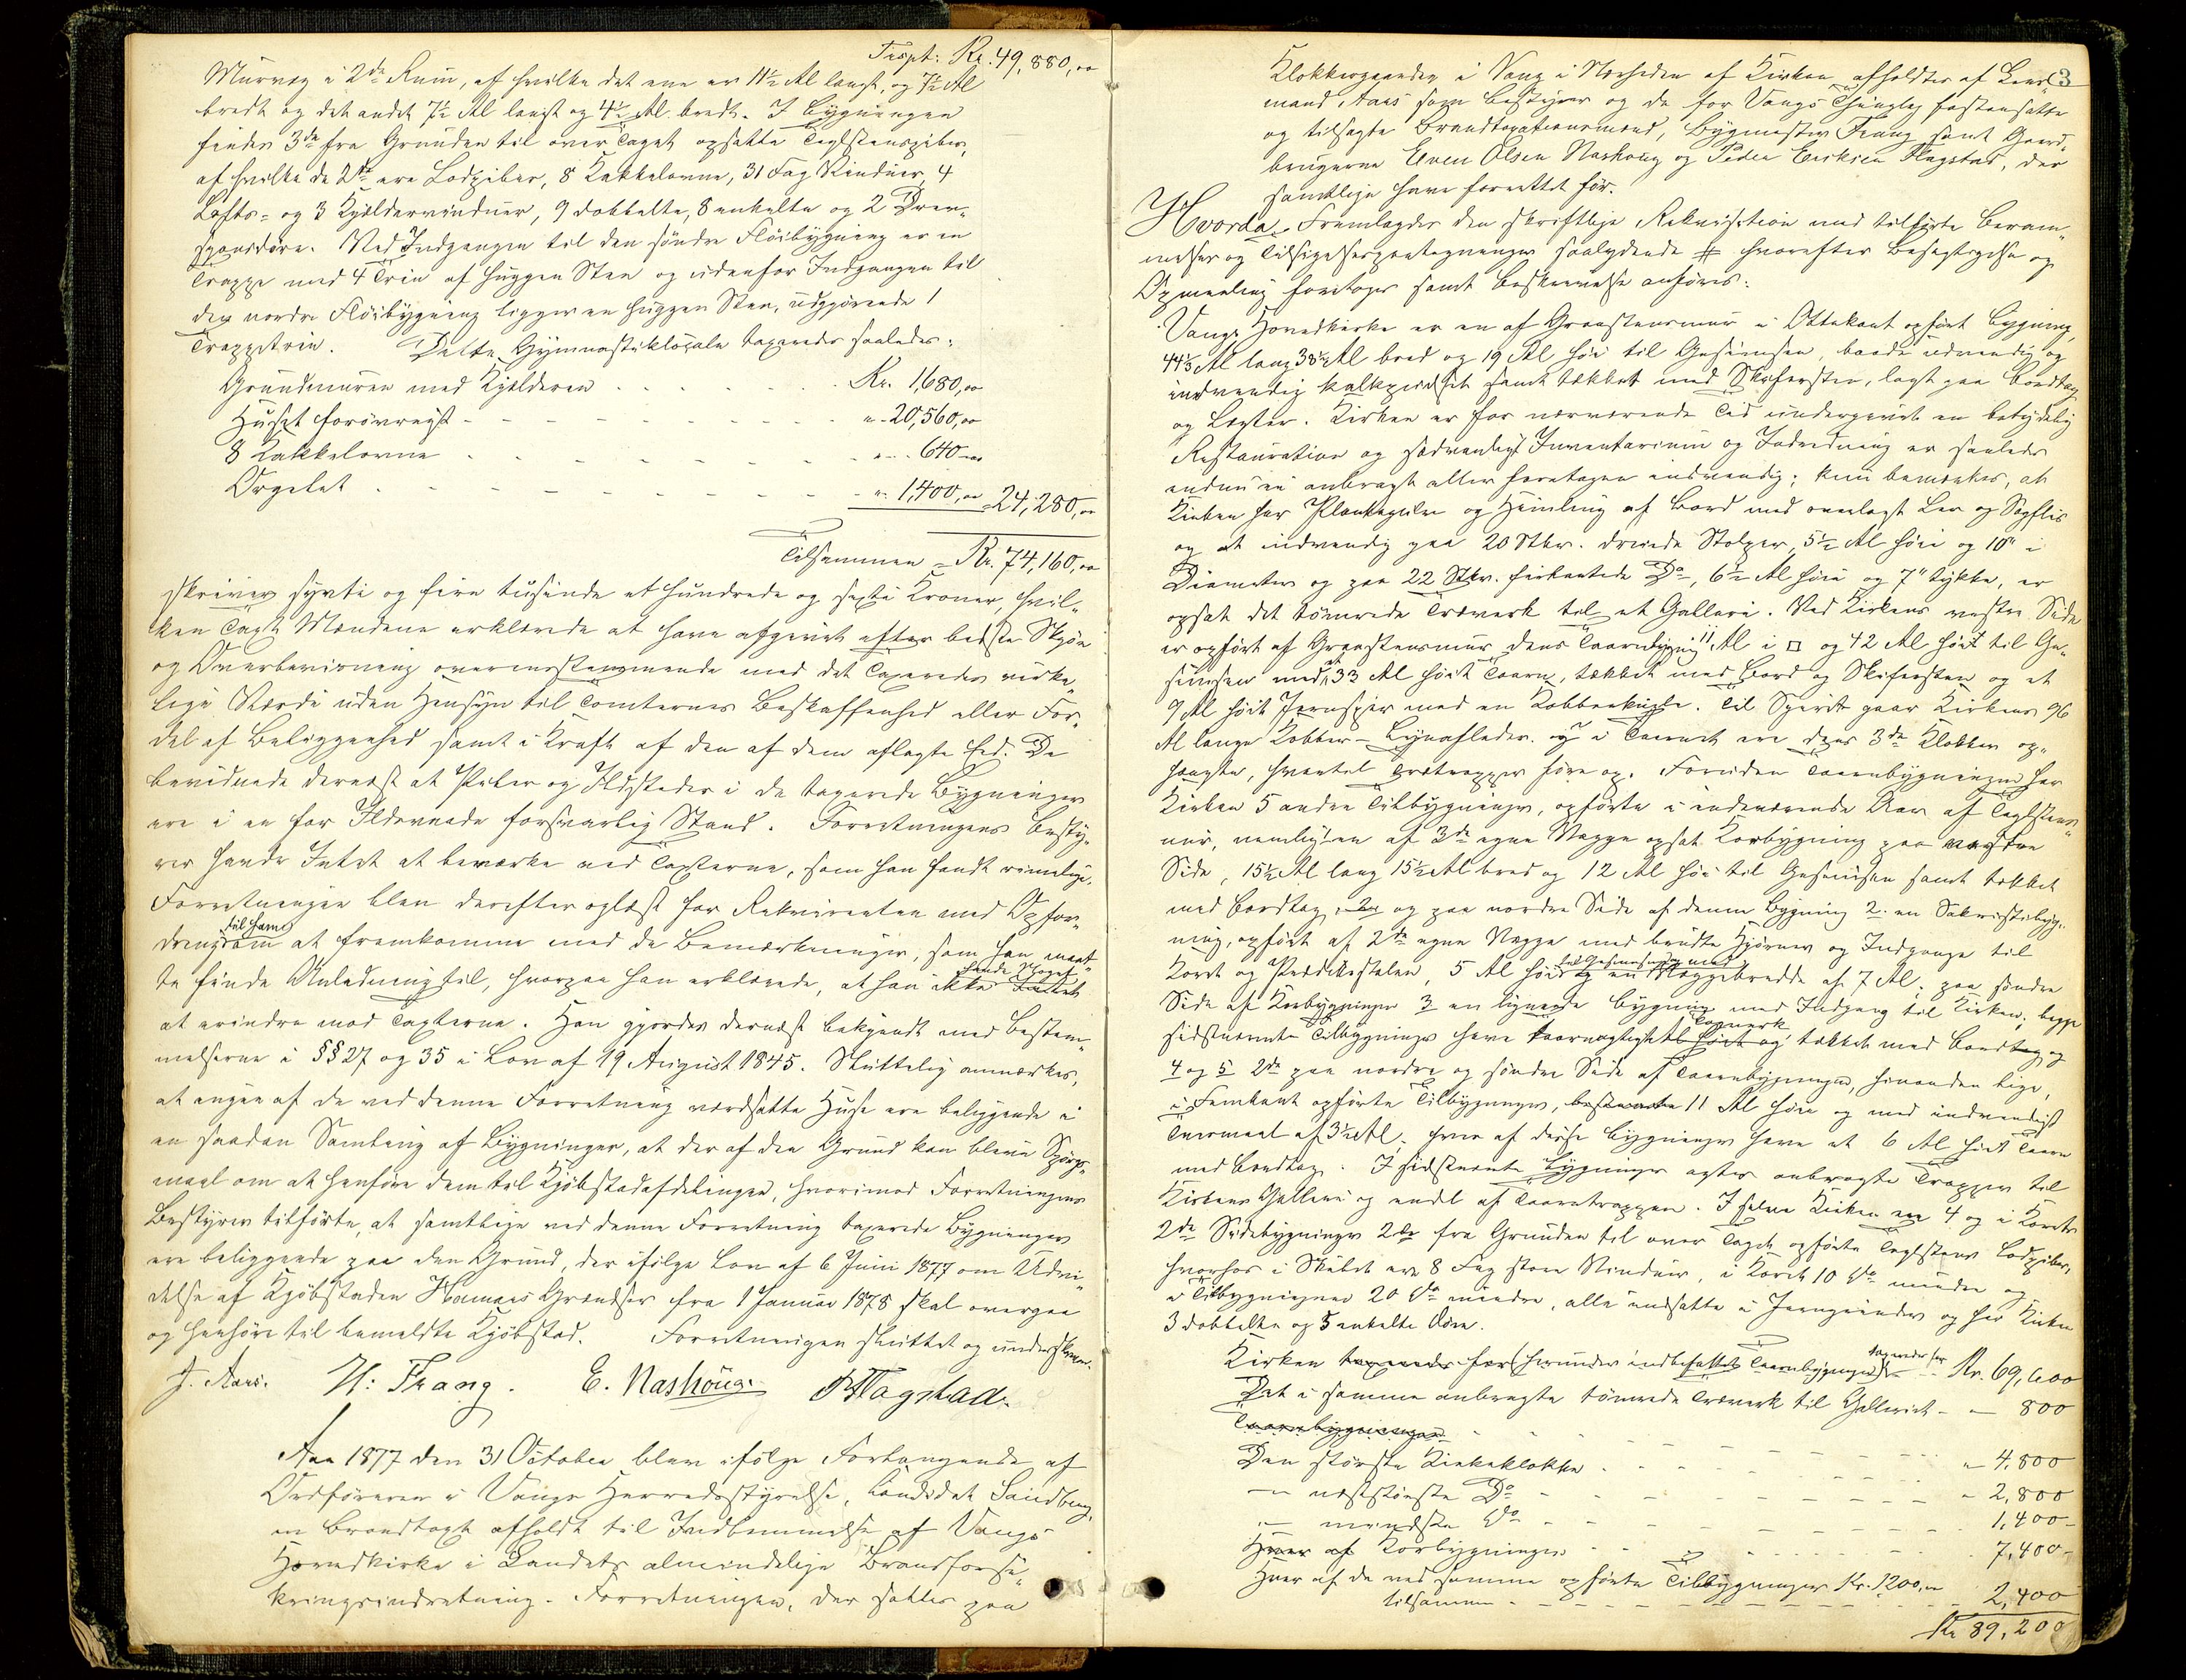 Trspt: Kr. 49,880,00
Murvæg i 2de Rum, af hvilke det ene er 11½ Al langt, og 7½ Al
bredt og det andet 7½ Al langt og 4½ Al. bredt. I Bygningen
findes 3de fra Grunden til over Taget opsatte Teglstenspiber,
af hvilke de 2de ere Lodpiber, 8 Kakkelovne, 31 Fag Vinduer, 4
Lofts- og 3 Kjældervinduer, 9 dobbelte, 8 enkelte og 2 Dræn-
Ved Indgangen til den söndre Flöibygning er en
Trappe med 4 Trin af huggen Sten og udenfor Indgangen til
den nordre Flöibygning ligger en huggen Sten, udgjörende 1
Trappetrin. Dette Gymnastiklokale taxeredes saaledes:
Grundmuren med Kjelderen . . . . Kr. 1,680,00
Huset forövrigt - - - - " - 20,560,00
8 Kakkelovne - - - - " - 640 -
Orgelet - - - - " 1,400,00 = 24,280,00
Tilsammen = Kr. 74,160,00
skriver sytti og fire tusinde et hundrede og sexti Kroner, hvil-
ken Taxt Mændene erklærede at have afgivet efter bedste Skjön
og Overbevisning overensstemmende med det Taxeredes virke-
lige Værdi uden Hensyn til Tomternes Beskaffenhed eller For-
del af Beliggenhed samt i Kraft af den af dem aflagte Eed. De
bevidnede dernæst at Piber og Ildsteder i de taxerede Bygninger
ere i en for Ildsvaade forsvarlig Stand. Forretningens Besty-
rer havde Intet at bemærke ved Taxterne, som han fandt rimelige.
Forretningen blev derefter oplæst for Rekvirenten med Opfor-
dring til ham om at fremkomme med de Bemærkninger, som han maat-
te finde Anledning til, hvorpaa han erklærede, at han ikke havde Noget
at erindre mod Taxterne. Han gjordes dernæst bekjendt med Bestem-
melserne i §§ 27 og 35 i Lov af 19 August 1845. Sluttelig anmærkes,
at ingen af de ved denne Forretning værdsatte Huse ere beliggende i
en saadan Samling af Bygninger, at der af den Grund kan blive Spörgs-
maal om at henföre dem til Kjöbstadafdelingen, hvorimod Forretningens
Bestyrer tilförte, at samtlige ved denne Forretning taxerede Bygninger
ere beliggende paa den Grund, der ifölge Lov af 6 Juni 1877 om Udvi-
delse af Kjöbstaden Hamars Grændser fra 1 Januar 1878 skal overgaa
og henhöre til bemeldte Kjöbstad. Forretningen sluttet og underskreven.
J. Aars. H: Frang. E. Nashoug. P Flagstad.
Aar 1877 den 31 October blev ifölge Forlangende af
Ordföreren i Vangs Herredsstyrelse, Candidat Sandberg,
en Brandtaxt afholdt til Indlemmelse af Vangs
Hovedkirke i Landets almindelige Brandforsik-
kringsindretning. Forretningen, der sattes paa
3
Klokkergaarden i Vang i Nærheden af Kirken afholdtes af Lens-
mand Aars som Bestyrer og de for Vangs Thinglag fastansatte
og tilsagte Brandtaxationsmænd, Bygmester Frang samt Gaard-
brugerne Even Olsen Nashoug og Peder Eriksen Flagstad, der
samtlige have forrettet för.
Hvorda Fremlagdes den skriftlige Rekvisition med tilförte Beram-
melser og Tilsigelsespaategninger saalydende # hvorefter Besigtigelse og
Opmaaling foretoges samt Beskrivelse anföres:
Vangs Hovedkirke er en af Graastensmur i Ottekant opfört Bygning,
44½ Al lang 38½ Al bred og 19 Al höi til Gesimsen, baade udvendig og
indvendig kalkpudset samt tækket med Skifersten, lagt paa Bordtag
og Lægter. Kirken er for nærværende Tid undergivet en betydelig
Restauration og sædvanligt Inventarium og Indredning er saaledes
endnu ei anbragt eller foretagen indvendig; kun bemærkes, at
Kirken har Plankegulv og Himling af Bord med overlagt Ler og Sagflis
og at indvendig paa 20 Stkr. dreiede Stolper, 5½ Al höie og 10" i
Diameter og paa 22 Stkr. firkantede Do, 6½ Al höie og 7" tykke, er
opsat det tömrede Træverk til et Galleri. Ved Kirkens vestre Side
er opfört af Graastensmur dens Taarnbygning 11 Al i □ og 42 Al höit til Ge-
simsen med et 33 Al höit Taarn, tækket med Bord og Skifersten og et
9 Al höit Jernspir med en Kobberkugle. Til Spiret gaar Kirkens 96
Al lange Kobber-Lynafleder og i Taarnet ere dens 3de Klokker op-
hængte, hvortil Trætrapper före op. Foruden Taarnbygningen har
Kirken 5 andre Tilbygninger, opförte i indeværende Aar af Teglstens-
mur, nemlig 1 en af 3de egne Vægge opsat Korbygning paa östre
Side, 15½ Al lang 15½ Al bred og 12 Al höi til Gesimsen samt tækket
med Bordtag, og paa nordre Side af denne Bygning 2. en Sakristibyg-
ning, opfört af 2de egne Vægge med brudte Hjörner og Indgange til
Koret og Prædikestolen, 5 Al höi til Gesimsen og med en Væggebredde af 7 Al; paa söndre
Side af Korbygningen 3 en lignende Bygning med Indgang til Kirken; begge
sidstnævnte Tilbygninger have tækket med Bordtag og
4 og 5 2de paa nordre og söndre Side af Taarnbygningen, hinanden lige,
i Femkant opförte Tilbygninger, 11 Al höie og med indvendigt
Tvermaal af 3½ Al; hver af disse Bygninger have et 6 Al höit Taarn
med Bordtag. I sidstnævnte Bygninger agtes anbragte Trapper til
Kirkens Galleri og endel af Taarntrappen. I selve Kirken ere 4 og i Korets
2de Sidebygninger 2de fra Grunden til over Taget opförte Teglstens Lodpiber,
hvorhos i Skibet ere 8 Fag store Vinduer, i Koret 10 do mindre og
i Tilbygningerne 20 do mindre, alle indsatte i Jernrammer og har Kirken
3 dobbelte og 5 enkelte Döre.
Kirken (herunder indbefattet Taarnbygningen) taxeredes for - - Kr. 69,600
Det i samme anbragte tömrede Træverk til Galleriet - - 800
Taarnbygningen
Den störste Kirkeklokke . . - - - " 4,800
— næststörste Do - - - - " 2,800
— mindste do - - - - 1,400 -
Korbygningen - - - - 7,400 -
Hver af de ved samme opförte Tilbygninger Kr. 1200,00
tilsammen - - - - 2,400
Kr 89,200